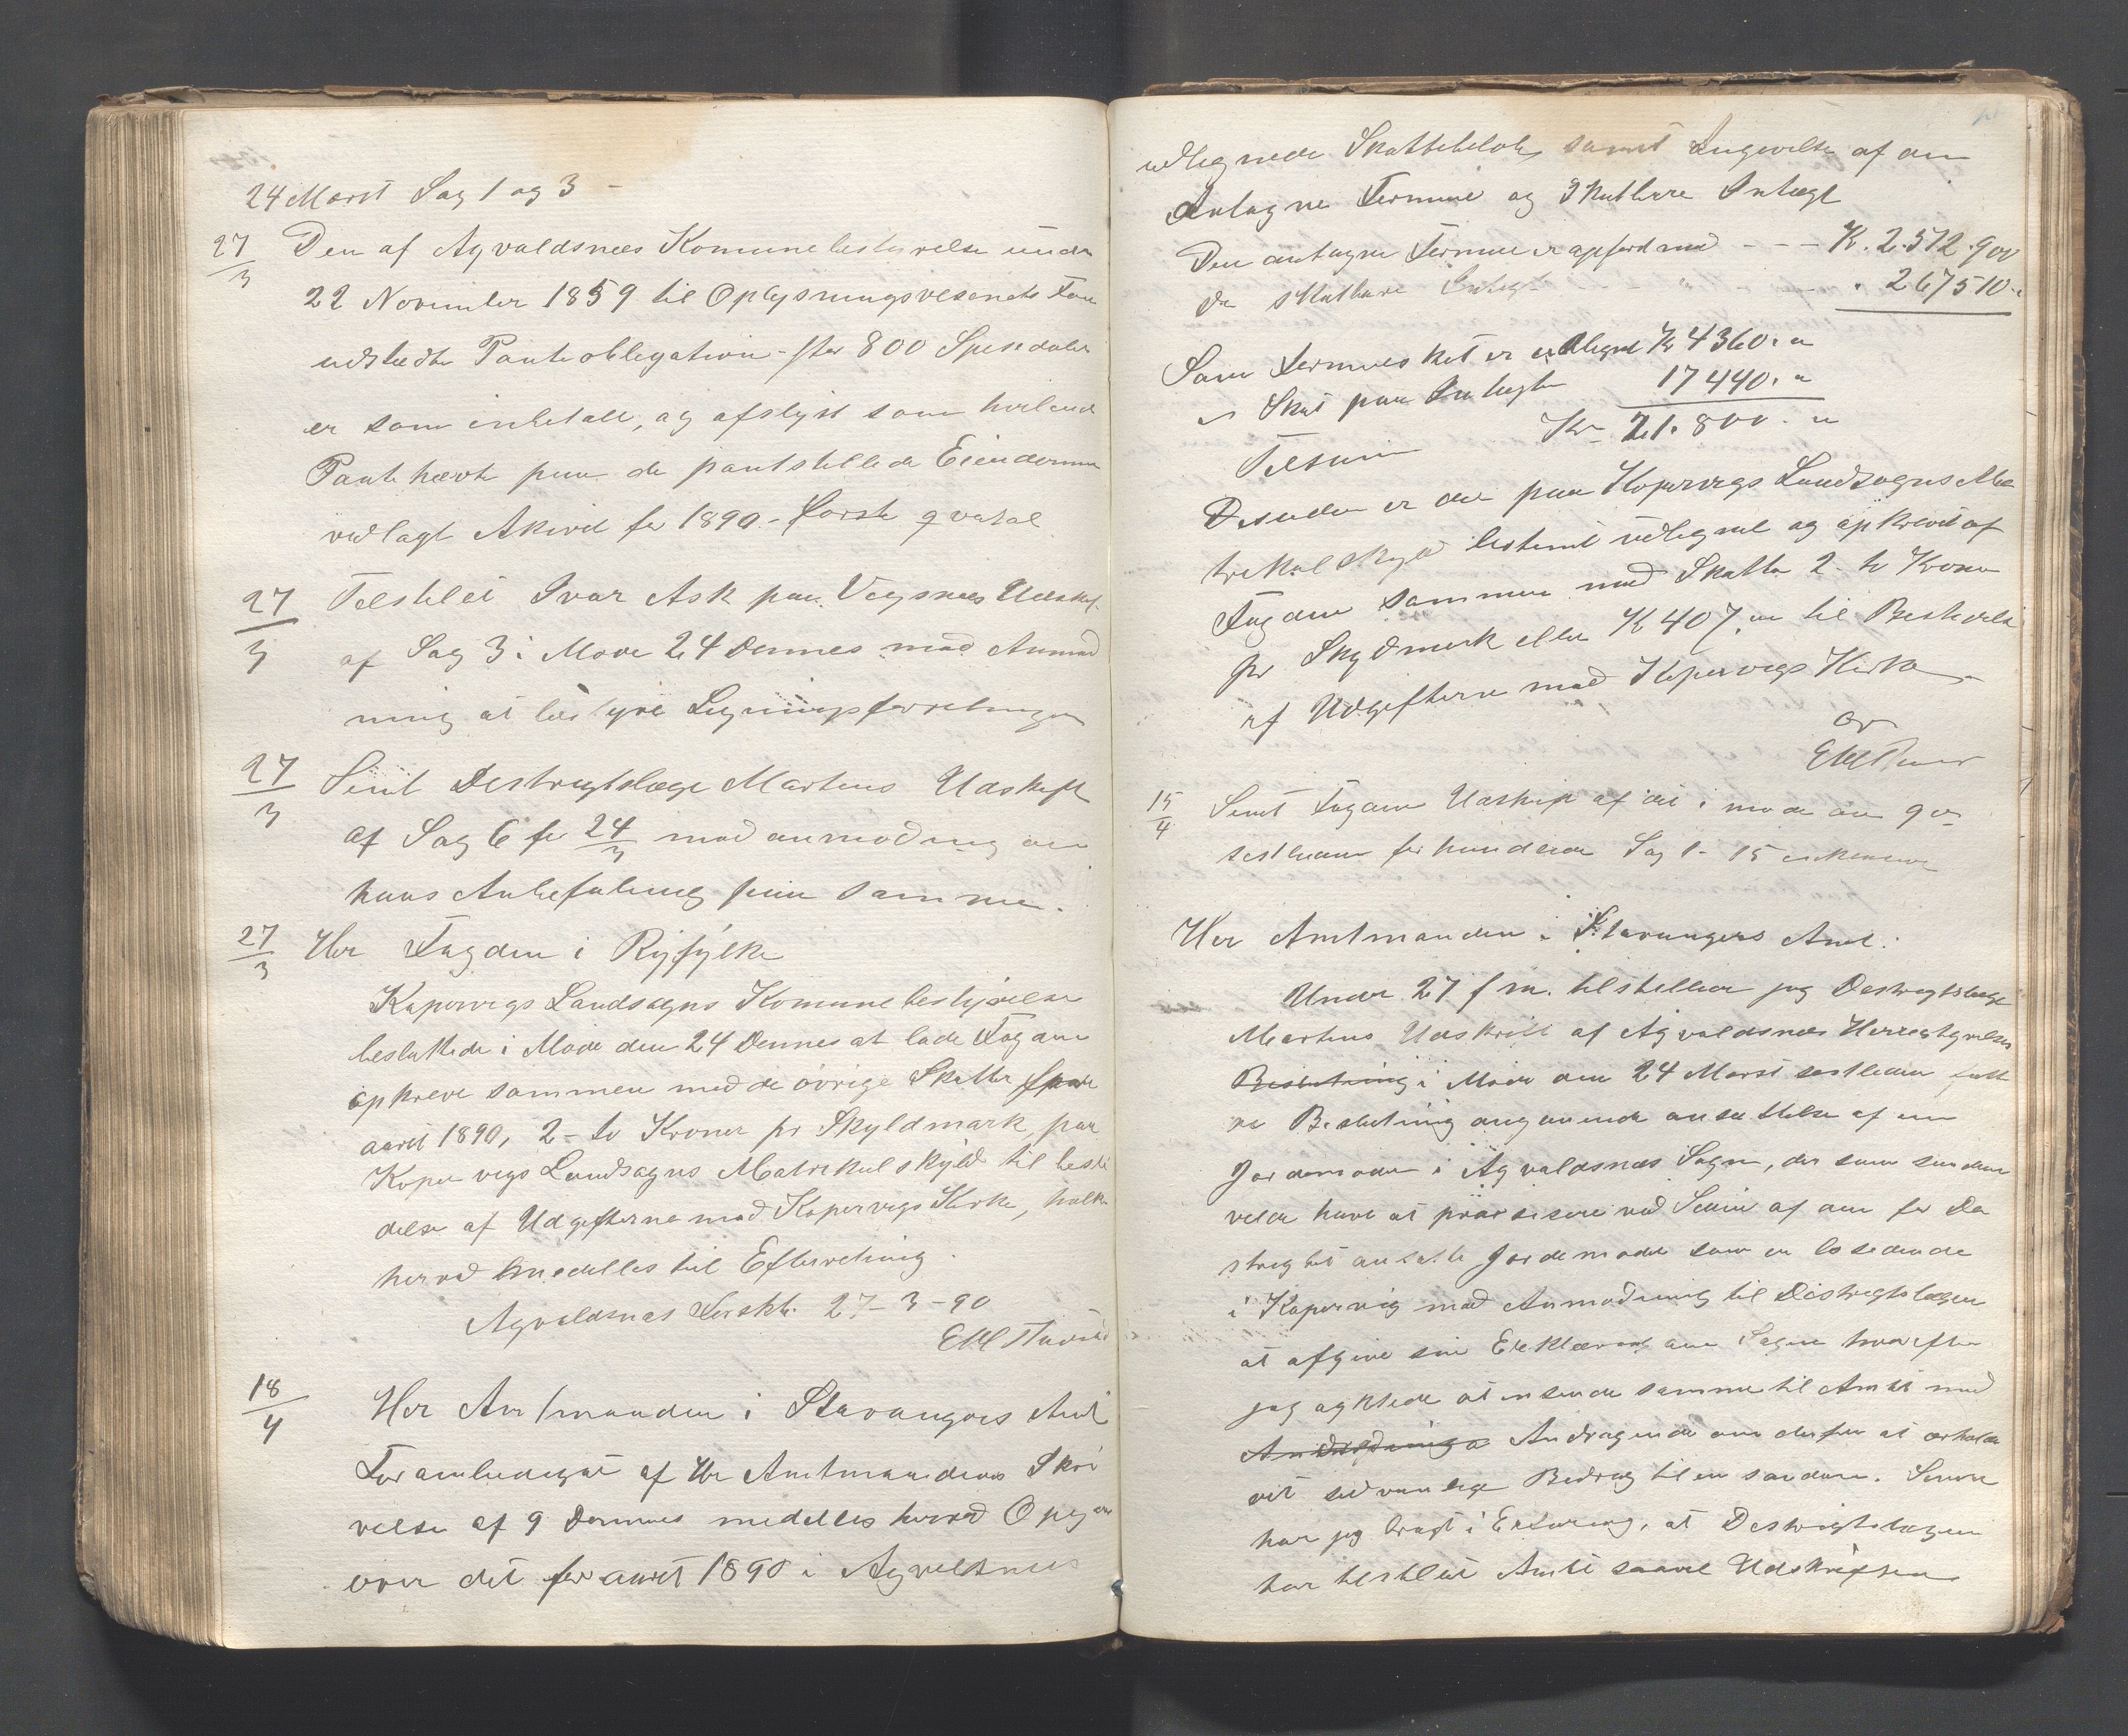 24 Marst Sag 1 og 3 -
27/3 Den af Agvaldsnes Komunebestyrelse under
22 November 1859 til Oplysningsvesenets Fon
udstedte Panteobligation - stor 800 Spesidaler
er som inbetalt, og afslyst som heftende
Pantehævte paa de pantstillede Eiendomme
vedlagt Akivet for 1890 - første qvatal
27/3 Telstilet Ivar Ask paa Vegsnes Udskf.
af Sag 3 i Møde 24 Dennes med Anmod
ning at bestyre Ligningsforretningen
27/3 Sent Destrigtslæge Martens Udskrft
af Sag 6 for 24/3 med anmodning om
hans Anbefaling paa samme.
27/3 Hr Fogden i Ryfylke
Kopervigs Landsogns Komunebestyrelse
besluttede i Møde den 24 Dennes at lade Fogden
opkreve sammen med de øvrige Skatter for
aaret 1890, 2 - to Kroner pr Skyldmark paa
Kopervigs Landsogns Matrikulskyld til bestri
delse af Udgifterne med Kopervigs Kirke, hvilke
herved meddelles til Efterretning.
Agvaldsnes Forskb. 27-3-90
18/4 Her Amtmanden i Stavangers Amt
Foranlediget af Hr Amtmandens Skri
velse af 9 Dennes meddelles herved Opgave
over det for aaret 1890 i Agvaldsnes
udlignede Skattebeløb samt Angivelse af den
Antagne Formue og Skatbare Intægt
Den antagne Formue er opført med - - - K. 2.572.900
Do skatbare Intægt - - - " - - " 267510.-
Som Formueskat er udlignet Kr 4360. "
" Skat paa Intægter 17440. "
Telsammen Kr 21.800. "
Desuden er der paa Kopervigs Landsogns Ma
trikulskyld bestemt udlignet og opkrevet af
Fogden sammen med Skatter 2 - to Kroner
pr Skyldmark eller K 407. " til Bestridelse
af Udgifterne med Kopervigs Kirke.
15/4 Sent Fogden Udskrip af det i møde den 9de
sistleden forhandlede Sag 1 - 15
Her Amtmanden i Stavangers Amt.
Under 27 f m. tilstillede jeg Destrigtslæge
Martens Udskrift af Agvaldsnes Herrestyrelses
Beslutning i Møde den 24 Marst sistleden fatt
de Beslutning angaaende ansættelse af en
Jordemoder i Agvaldsnes Sogn, der som saadan
vilde have at praksisere ved Siden af den for De
strigtet ansatte Jordemoder som er bosidende
i Kopervig med Anmodning til Distrigtslægen
at afgive sin Erklæring om Sagen hvorefter
jeg agtede at insende samme til Amtet med
Andragende om derfor at erholde
vet sedvanlige Bedrag til en saadan. Senere
har jeg bragt i Erfaring, at Destrigtslægen
har tilstillet Amtet saavel Udskriften